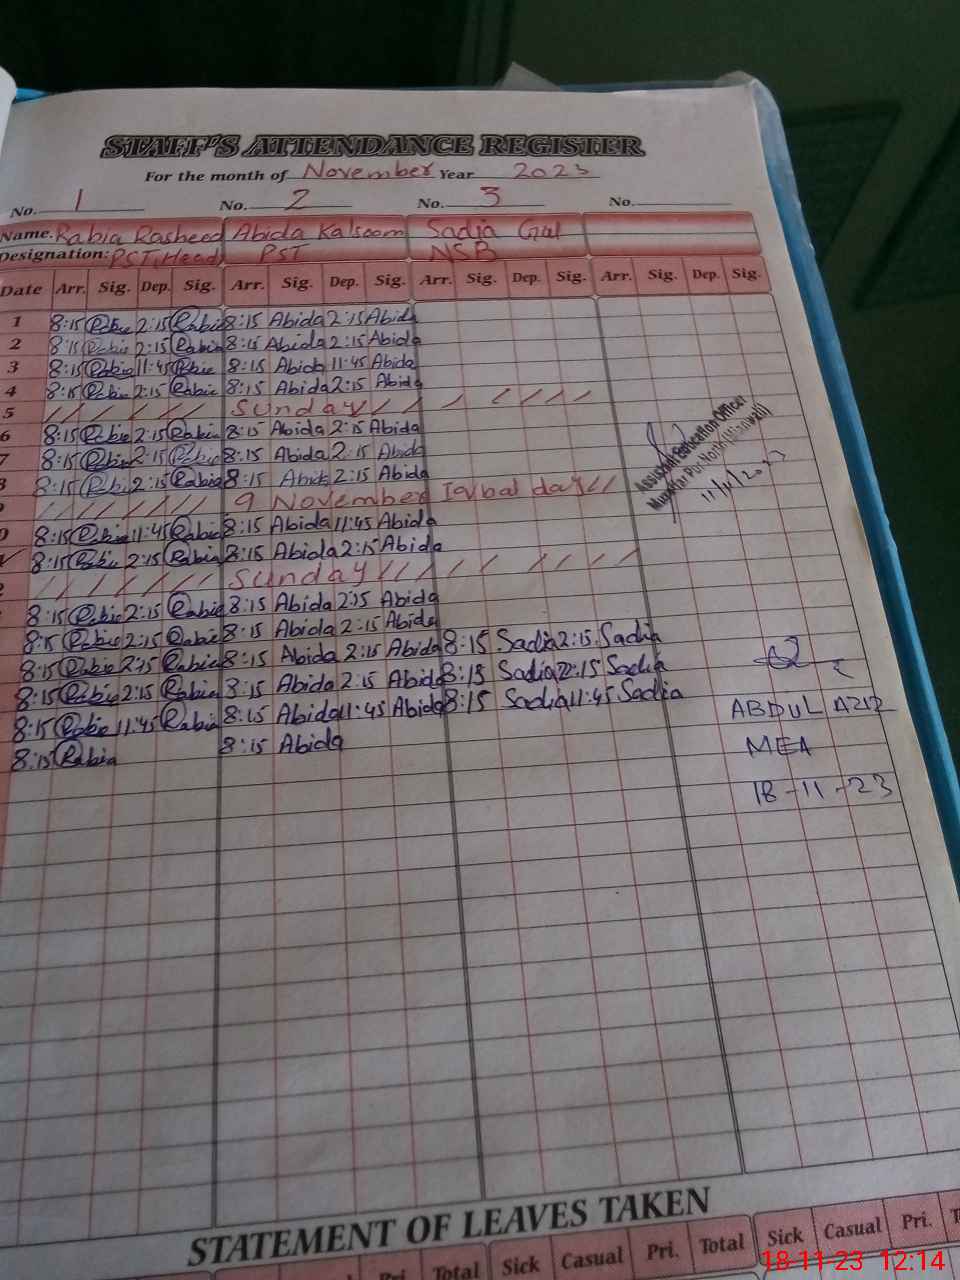 STAFF'S ATTENDANCE REGISTER
For the month of November Year 2023
No. 1 No. 2 No. 3 No.
Name. Rabia Rasheed Abida Kalsoom Sadia Gul
Designation: PST, Head PST NSB
Date Arr. Sig. Dep. Sig. Arr. Sig. Dep. Sig. Arr. Sig. Dep. Sig. Arr. Sig. Dep. Sig.
1 8:15 Rabia 2:15 Rabia 8:15 Abida 2:15 Abida
2 8:15 Rabia 2:15 Rabia 8:15 Abida 2:15 Abida
3 8:15 Rabia 11:45 Rabia 8:15 Abida 11:45 Abida
4 8:15 Rabia 2:15 Rabia 8:15 Abida 2:15 Abida
5 / / / / / / / Sunday / / / / / / / /
6 8:15 Rabia 2:15 Rabia 8:15 Abida 2:15 Abida
7 8:15 Rabia 2:15 Rabia 8:15 Abida 2:15 Abida
8:15 Rabia 2:15 Rabia 8:15 Abida 2:15 Abida
/ / / / / / / 9 November Iqbal day //
8:15 Rabia 11:45 Rabia 8:15 Abida 11:45 Abida
8:15 Rabia 2:15 Rabia 8:15 Abida 2:15 Abida
/ / / / / / / Sunday / / / / / / / / /
8:15 Rabia 2:15 Rabia 8:15 Abida 2:15 Abida
8:15 Rabia 2:15 Rabia 8:15 Abida 2:15 Abida
8:15 Rabia 2:15 Rabia 8:15 Abida 2:15 Abida 8:15 Sadia 2:15 Sadia
8:15 Rabia 2:15 Rabia 8:15 Abida 2:15 Abida 8:15 Sadia 2:15 Sadia
8:15 Rabia 11:45 Rabia 8:15 Abida 11:45 Abida 8:15 Sadia 11:45 Sadia
8:15 Rabia 8:15 Abida
Assistant Education Officer
11/11/2023
ABDUL AZIZ
MEA
18-11-23
STATEMENT OF LEAVES TAKEN
Pri. Total Sick Casual Pri. Total Sick Casual Pri.
18-11-23 12:14